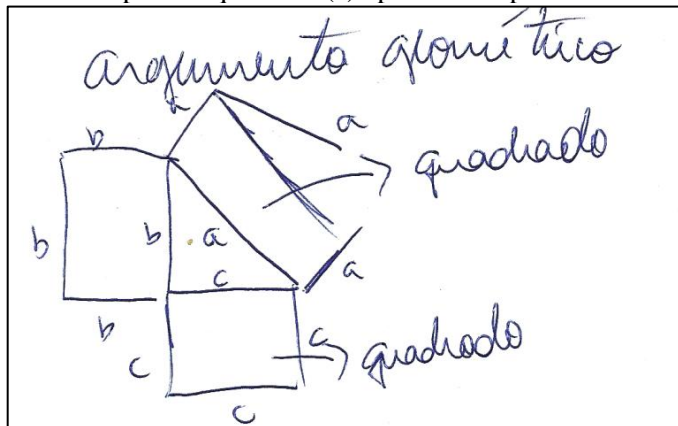 argumento geométrico
a
a
b
quadrado
b
b
a
c
a
b
c
c
quadrado
c